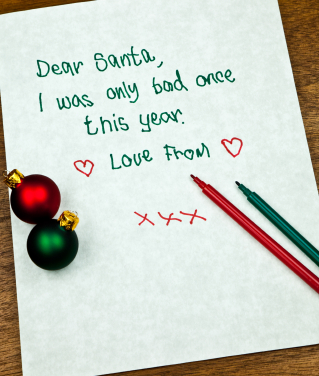 Dear Santa,
I was only bad once
this year.
Love From
xxx